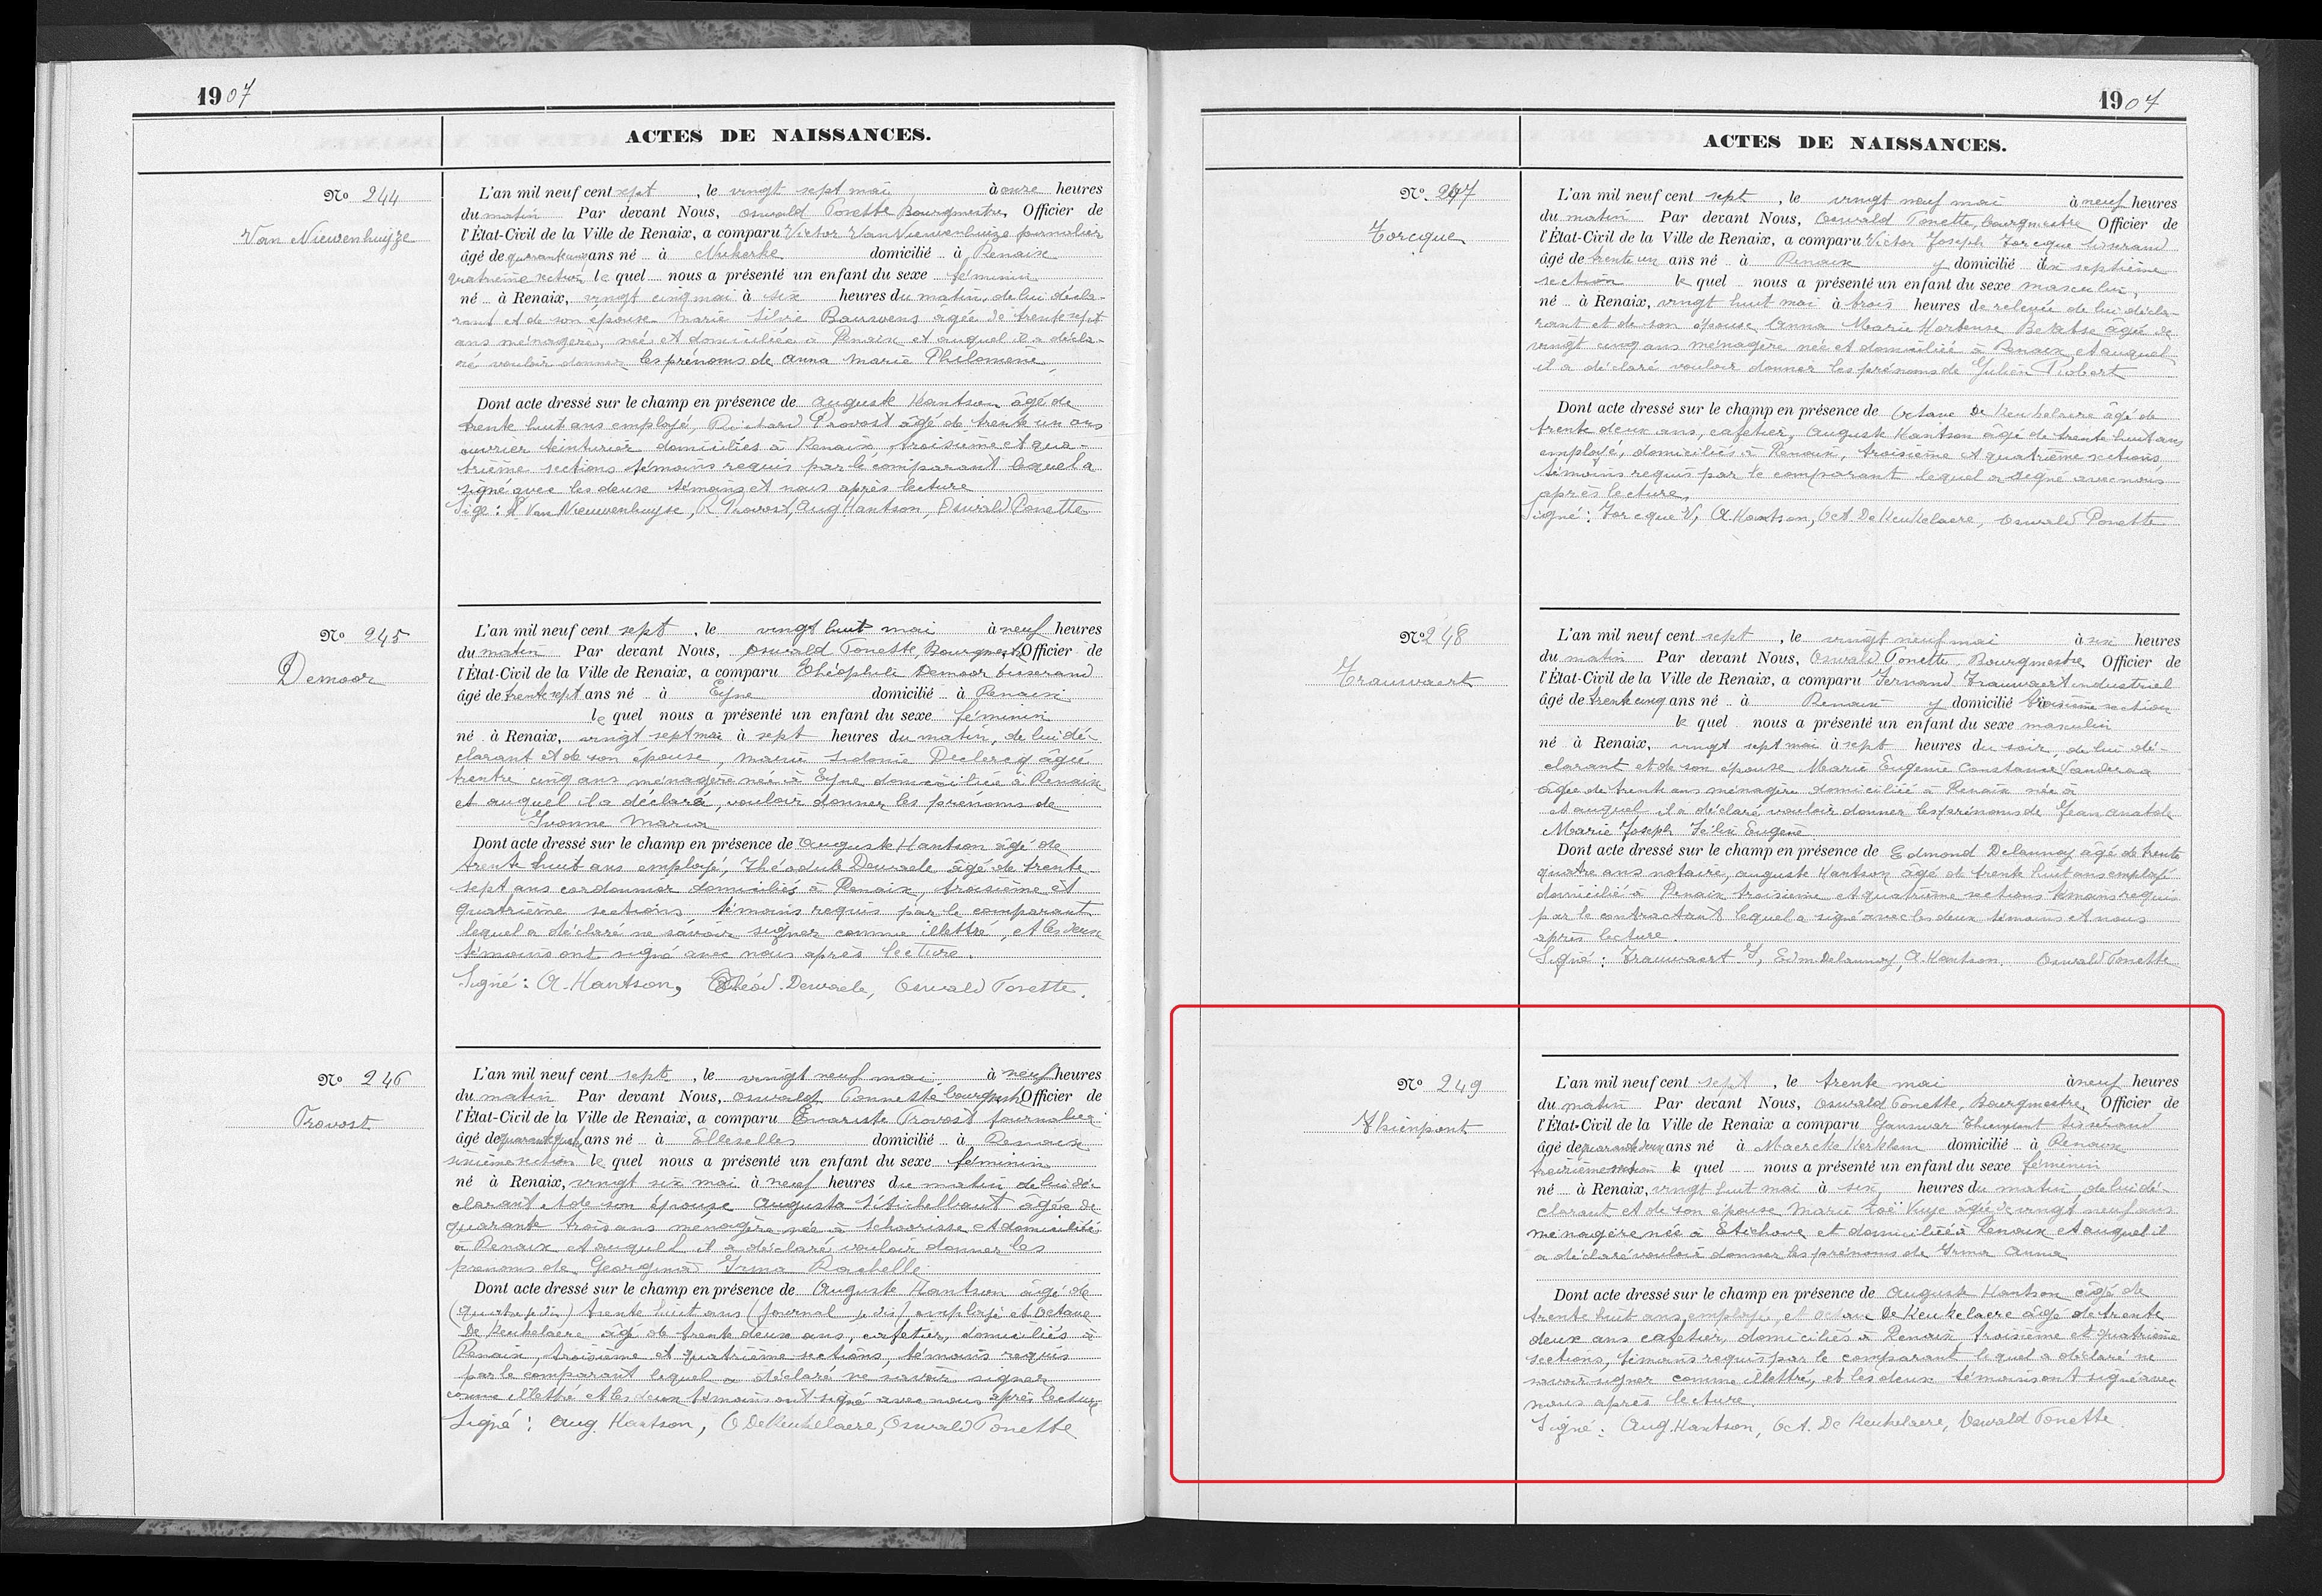 1907
ACTES DE NAISSANCES.
No 244
Van Nieuwenhuyze
L'an mil neuf cent sept, le vingt sept mai à onze heures
du matin Par devant Nous, Oswald Ponette Bourgmestre, Officier de
l'État-Civil de la Ville de Renaix, a comparu Victor Van Nieuwenhuize journalier
âgé de ans né à Nukerke domicilié à Renaix
quatrième section lequel nous a présenté un enfant du sexe féminin
né à Renaix, vingt cinq mai à six heures du matin, de lui décla-
rant et de son épouse Marie Silvie Bauwens âgée de trente sept
ans ménagère, née et domiciliée à Renaix et auquel il a décla-
ré vouloir donner les prénoms de Anna Marie Philomène
Dont acte dressé sur le champ en présence de Auguste Hantson âgé de
trente huit ans employé, Richard Provost âgé de trente un ans
ouvrier teinturier domiciliés à Renaix, troisième et qua-
trième sections témoins requis par le comparant lequel a
signé avec les deux témoins et nous après lecture
Signé: V Van Nieuwenhuyse, R Provost, Aug Hantson, Oswald Ponette
No 245
Demoor
L'an mil neuf cent sept, le vingt huit mai à neuf heures
du matin Par devant Nous, Oswald Ponette, Bourgmestre Officier de
l'État-Civil de la Ville de Renaix, a comparu Théophile Demoor tisserand
âgé de trente sept ans né à Eyne domicilié à Renaix
lequel nous a présenté un enfant du sexe féminin
né à Renaix, vingt sept mai à sept heures du matin, de lui dé-
clarant et de son épouse, Marie Sidonie Declercq âgée
trente cinq ans ménagère née à Eyne domiciliée à Renaix
et auquel il a déclaré, vouloir donner les prénoms de
Yvonne Maria
Dont acte dressé sur le champ en présence de Auguste Hantson âgé de
trente huit ans employé, Théodule Dewaele âgé de trente
sept ans cordonnier domiciliés à Renaix, troisième et
quatrième sections témoins requis par le comparant
lequel a déclaré ne savoir signer comme illettré, et les deux
témoins ont signé avec nous après lecture.
Signé: A. Hantson, Théod. Dewaele, Oswald Ponette.
No 246
Provost
L'an mil neuf cent sept, le vingt neuf mai à neuf heures
du matin Par devant Nous, Oswald Ponnette bourgmestre Officier de
l'État-Civil de la Ville de Renaix, a comparu Evariste Provost journalier
âgé de ans né à Ellezelles domicilié à Renaix
sixième section lequel nous a présenté un enfant du sexe féminin
né à Renaix, vingt six mai à neuf heures du matin de lui dé-
clarant et de son épouse Augusta âgée de
quarante trois ans ménagère née à Schoorisse et domiciliée
à Renaix et auquel il a déclaré vouloir donner les
prénoms de Georgina Irma Rachelle
Dont acte dressé sur le champ en présence de Auguste Hantson âgé de
trente huit ans (journal je dis) employé et Octave
De Keukelaere âgé de trente deux ans, cafetier, domiciliés à
Renaix, troisième et quatrième sections, témoins requis
par le comparant lequel a déclaré ne savoir signer
comme illettré et les deux témoins ont signé avec nous après lecture
Signé: Aug. Hantson, O DeKeukelaere, Oswald Ponette
1907
ACTES DE NAISSANCES.
No. 247
Torcque
L'an mil neuf cent sept, le vingt neuf mai à neuf heures
du matin Par devant Nous, Oswald Ponette, bourgmestre Officier de
l'État-Civil de la Ville de Renaix, a comparu Victor Joseph Torcque tisserand
âgé de trente un ans né à Renaix y domicilié septième
section lequel nous a présenté un enfant du sexe masculin,
né à Renaix, vingt huit mai à trois heures de relevée de lui décla-
rant et de son épouse Anna Marie Hortense âgée de
vingt cinq ans ménagère née et domiciliée à Renaix et auquel
il a déclaré vouloir donner les prénoms de Julien Robert
Dont acte dressé sur le champ en présence de Octave De Keukelaere âgé de
trente deux ans, cafetier, Auguste Hantson âgé de trente huit ans
employé, domiciliés à Renaix, troisième et quatrième sections
témoins requis par le comparant lequel a signé avec nous
après lecture,
Signé: Torcque V, A. Hantson, Oct. De Keukelaere, Oswald Ponette
No 248
Trauwaert
L'an mil neuf cent sept, le vingt neuf mai à six heures
du matin Par devant Nous, Oswald Ponette, Bourgmestre, Officier de
l'État-Civil de la Ville de Renaix, a comparu Fernand Trauwaert industriel
âgé de trente cinq ans né à Renaix y domicilié troisième section
lequel nous a présenté un enfant du sexe masculin
né à Renaix, vingt sept mai à sept heures du soir, de lui dé-
clarant et de son épouse Marie Eugenie Constance Vanderaa
âgée de trente ans ménagère domiciliée à Renaix née à
et auquel il a déclaré vouloir donner les prénoms de Jean Anatole
Marie Joseph Félix Eugène
Dont acte dressé sur le champ en présence de Edmond Delaunoy âgé de trente
quatre ans notaire, Auguste Hantson âgé de trente huit ans employé
domicilié à Renaix troisième et quatrième sections témoins requis
par le contractant lequel a signé avec les deux témoins et nous
après lecture.
Signé: Trauwaert F, Edm. Delaunoy, A. Hantson. Oswald Ponette
No 249
Thienpont
L'an mil neuf cent sept, le trente mai à neuf heures
du matin Par devant Nous, Oswald Ponette, Bourgmestre, Officier de
l'État-Civil de la Ville de Renaix a comparu Thienpont tisserand
âgé de quarante deux ans né à Maercke Kerkhem domicilié à Renaix
troisième section lequel nous a présenté un enfant du sexe féminin
né à Renaix, vingt huit mai à six heures du matin, de lui dé-
clarant et de son épouse Marie Zoé Vuye âgée de vingt neuf ans
ménagère née à Etichove et domiciliée à Renaix et auquel il
a déclaré vouloir donner les prénoms de Irma Anna
Dont acte dressé sur le champ en présence de Auguste Hantson âgé de
trente huit ans employé, et Octave De Keukelaere âgé de trente
deux ans cafetier, domiciliés à Renaix troisième et quatrième
sections, témoins requis par le comparant lequel a déclaré ne
savoir signer comme illettré, et les deux témoins ont signé avec
nous après lecture.
Signé: Aug. Hantson, Oct. De Keukelaere, Oswald Ponette.